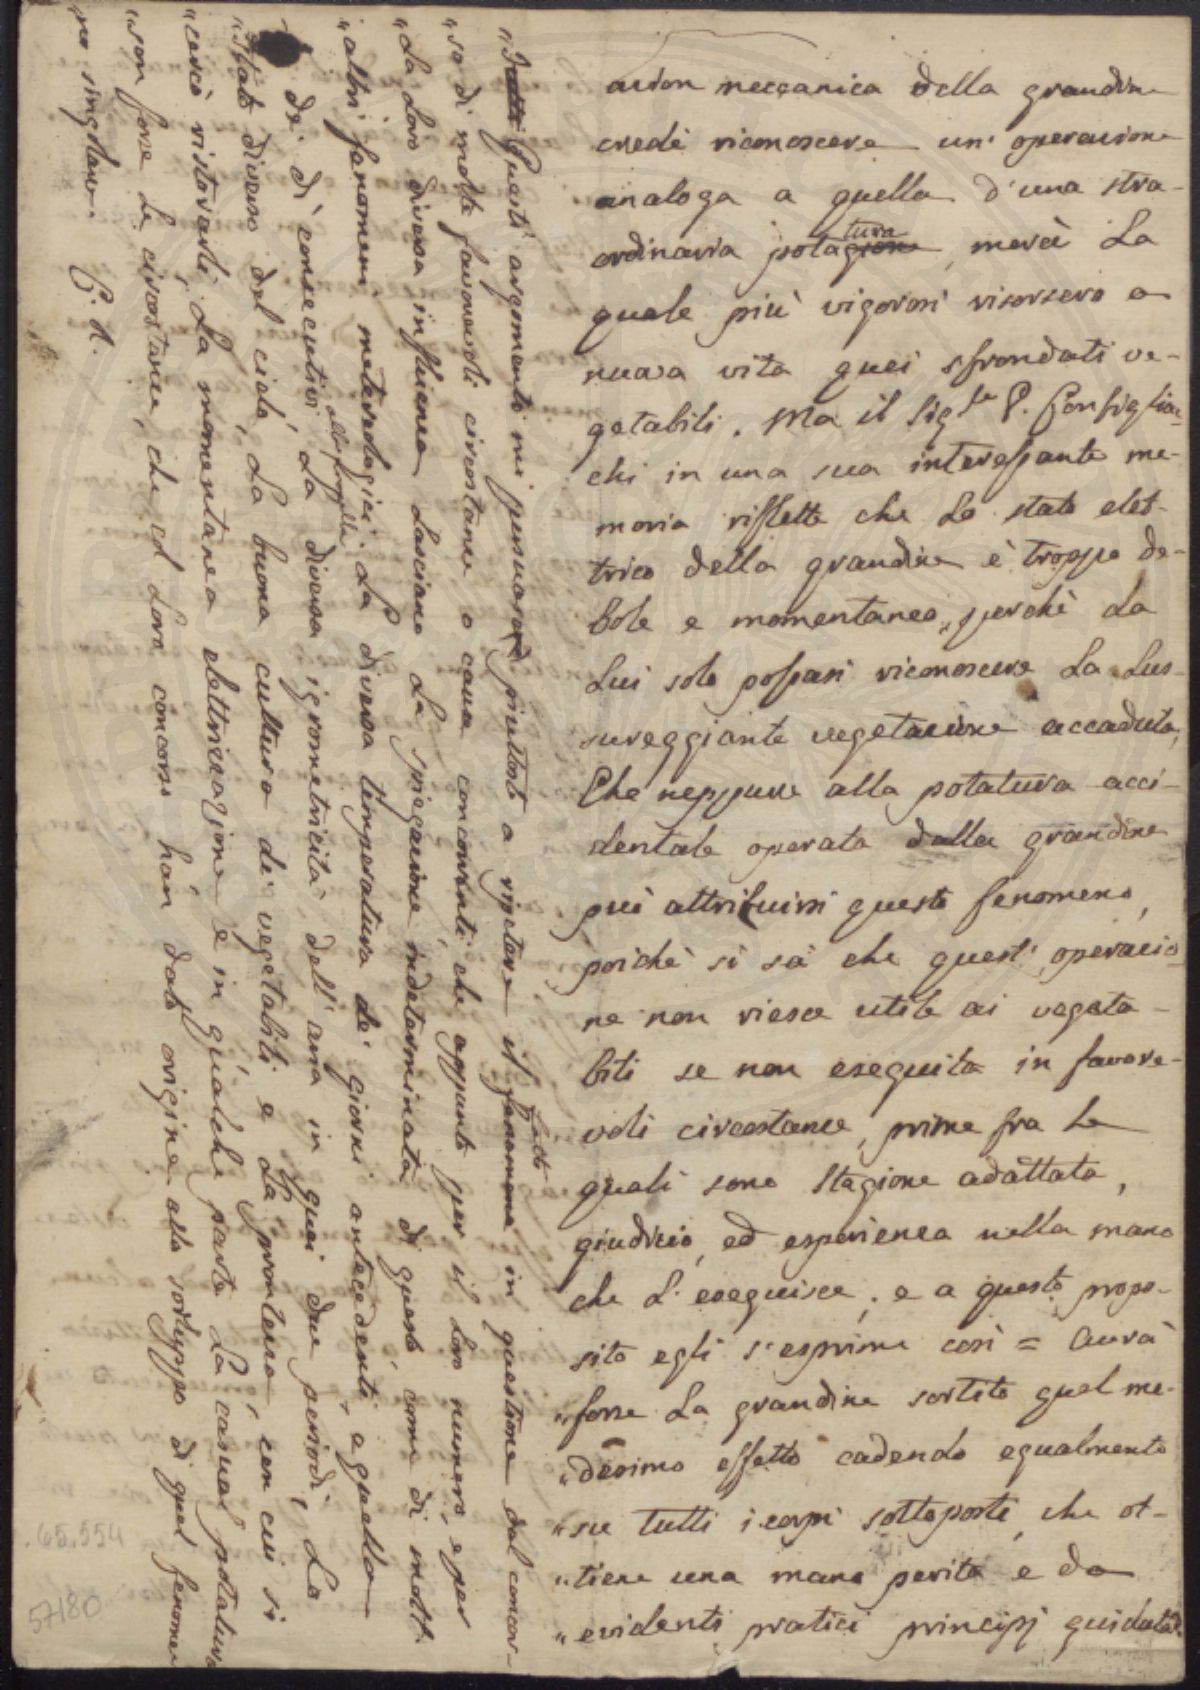 azion meccanica della grandine
credè riconoscere un' operazione
analoga a quella d'una stra-
ordinaria potagione tura, mercè la
quale più vigorosi risorsero a
nuova vita quei sfrondati ve-
getabili. Ma il Sig.re P. Configlia-
chi in una sua interessante me-
moria riflette che lo stato elet-
trico della grandine è troppo de-
bole e momentaneo, perchè da
lui solo possasi riconoscere la lus-
sureggiante vegetazione accaduta;
Che neppure alla potatura acci-
dentale operata dalla grandine
può attribuirsi questo fenomeno,
poichè si sà che quest' operazio-
ne non riesce utile ai vegeta-
bili se non eseguita in favore-
voli circostanze, prime fra le
quali sono Stagione adattata,
giudizio, ed esperienza nella mano
che l'eseguisce; e a questo propo-
sito egli s'esprime così = Avrà
"forse la grandine sortito quel me-
"desimo effetto cadendo egualmente
"su tutti i corpi sottoposti, che ot-
"tiene una mano perita e da
"evidenti pratici principj guidata?
"Tutti Questi argomenti mi persuasero piuttosto a ripetere il fenomeno fatto in questione dal concor-
"so di molte favorevoli circostanze o cause concorrenti che appunto per il loro numero, e per
"la loro diversa influenza lasciano la spiegazione indeterminata di questo, come di molti
"altri fenomeni meteorologici. La diversa temperatura de' giorni antecedenti, a quella
" de' dì consecutivi alla procella, la diversa igrometricità dell' aria in quei due periodi, lo
"stato diverso del cielo, la buona cultura de' vegetabili e la prontezza, con cui si
"cercò ristorarli, la momentanea elettrizzazione e in qualche parte la casual potatura
"son forse le circostanze, che col loro concorso han dato origine allo sviluppo di quel fenome-
"no singolare. G. R.
65.554
57180